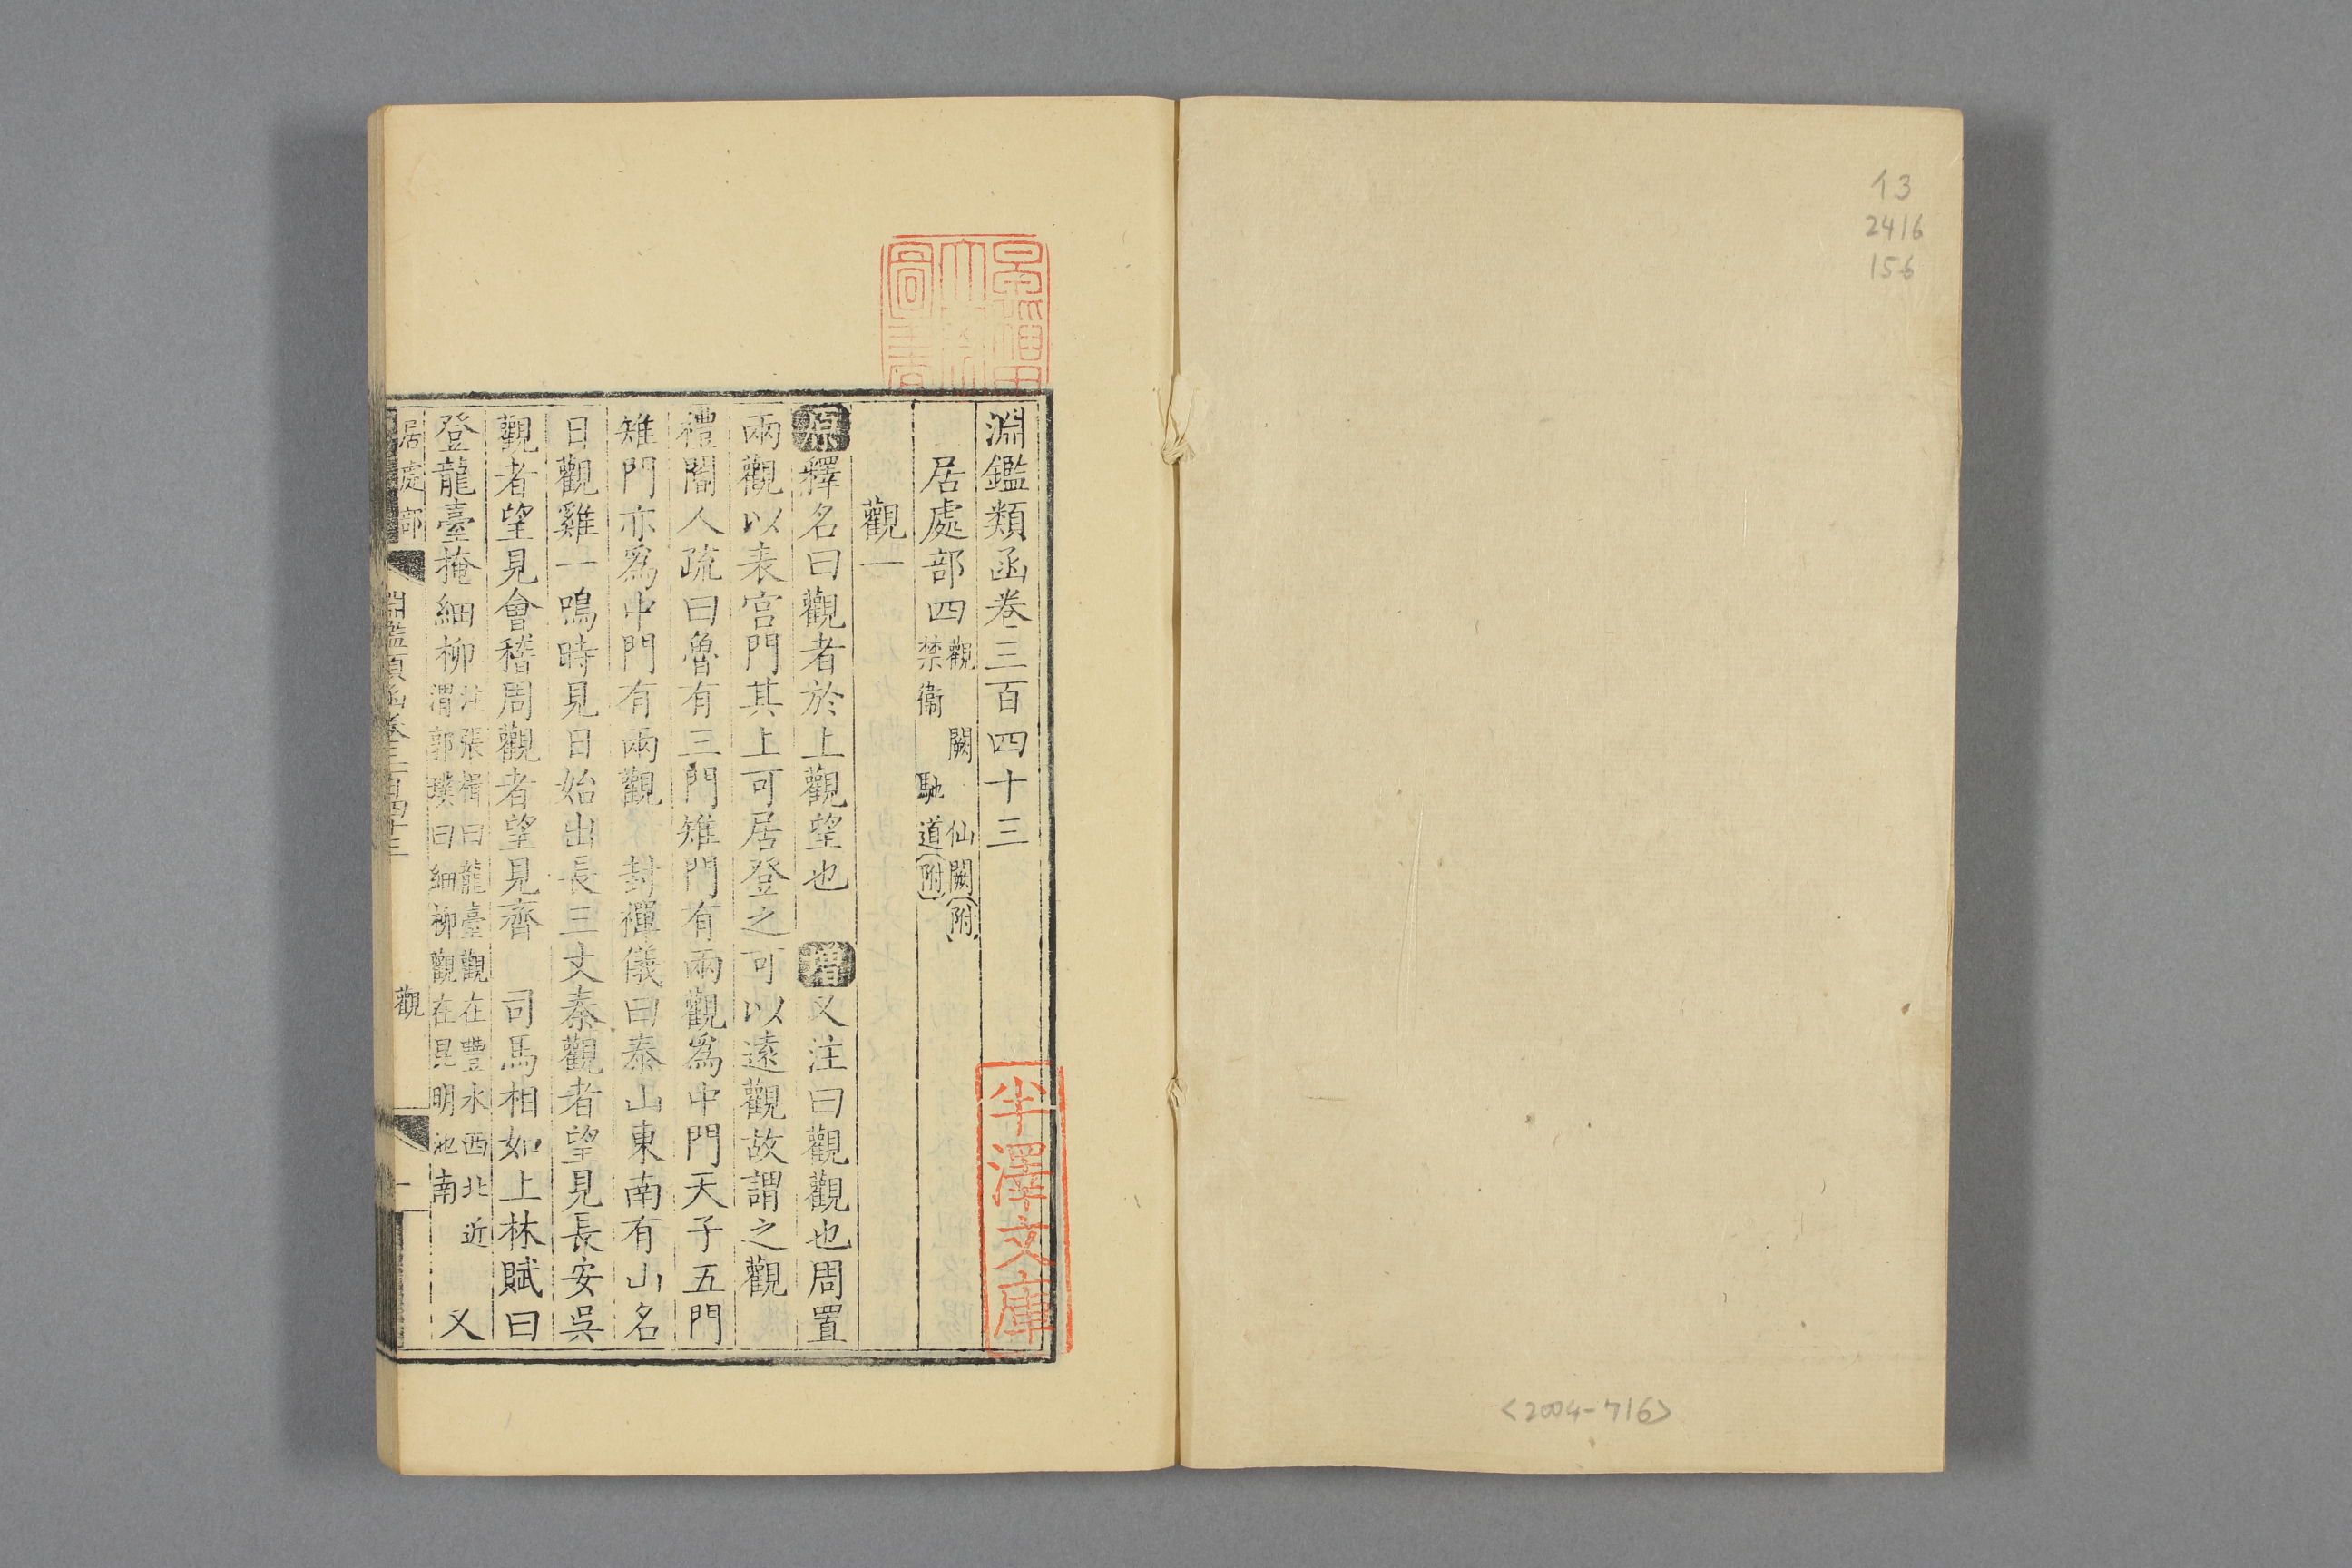 イ3
2416
156
<2004-716>
早稲田大學圖書
半澤文庫
淵鑑類函卷三百四十三
居處部四 觀 闕 仙闕(附)
禁衞 馳道(附)
觀一
原 釋名曰觀者於上觀望也 增 又注曰觀觀也周置
兩觀以表宮門其上可居登之可以遠觀故謂之觀
禮閽人疏曰魯有三門雉門有兩觀爲中門天子五門
雉門亦爲中門有兩觀 封禪儀曰泰山東南有山名
日觀雞一鳴時見日始出長三丈秦觀者望見長安吳
觀者望見會稽周觀者望見齊 司馬相如上林賦曰
登龍臺掩細柳 注張楫曰龍臺觀在豐水西北近
渭郭璞曰細柳觀在昆明池南 又
居處部 淵鑑類函卷三百四十三 觀 一